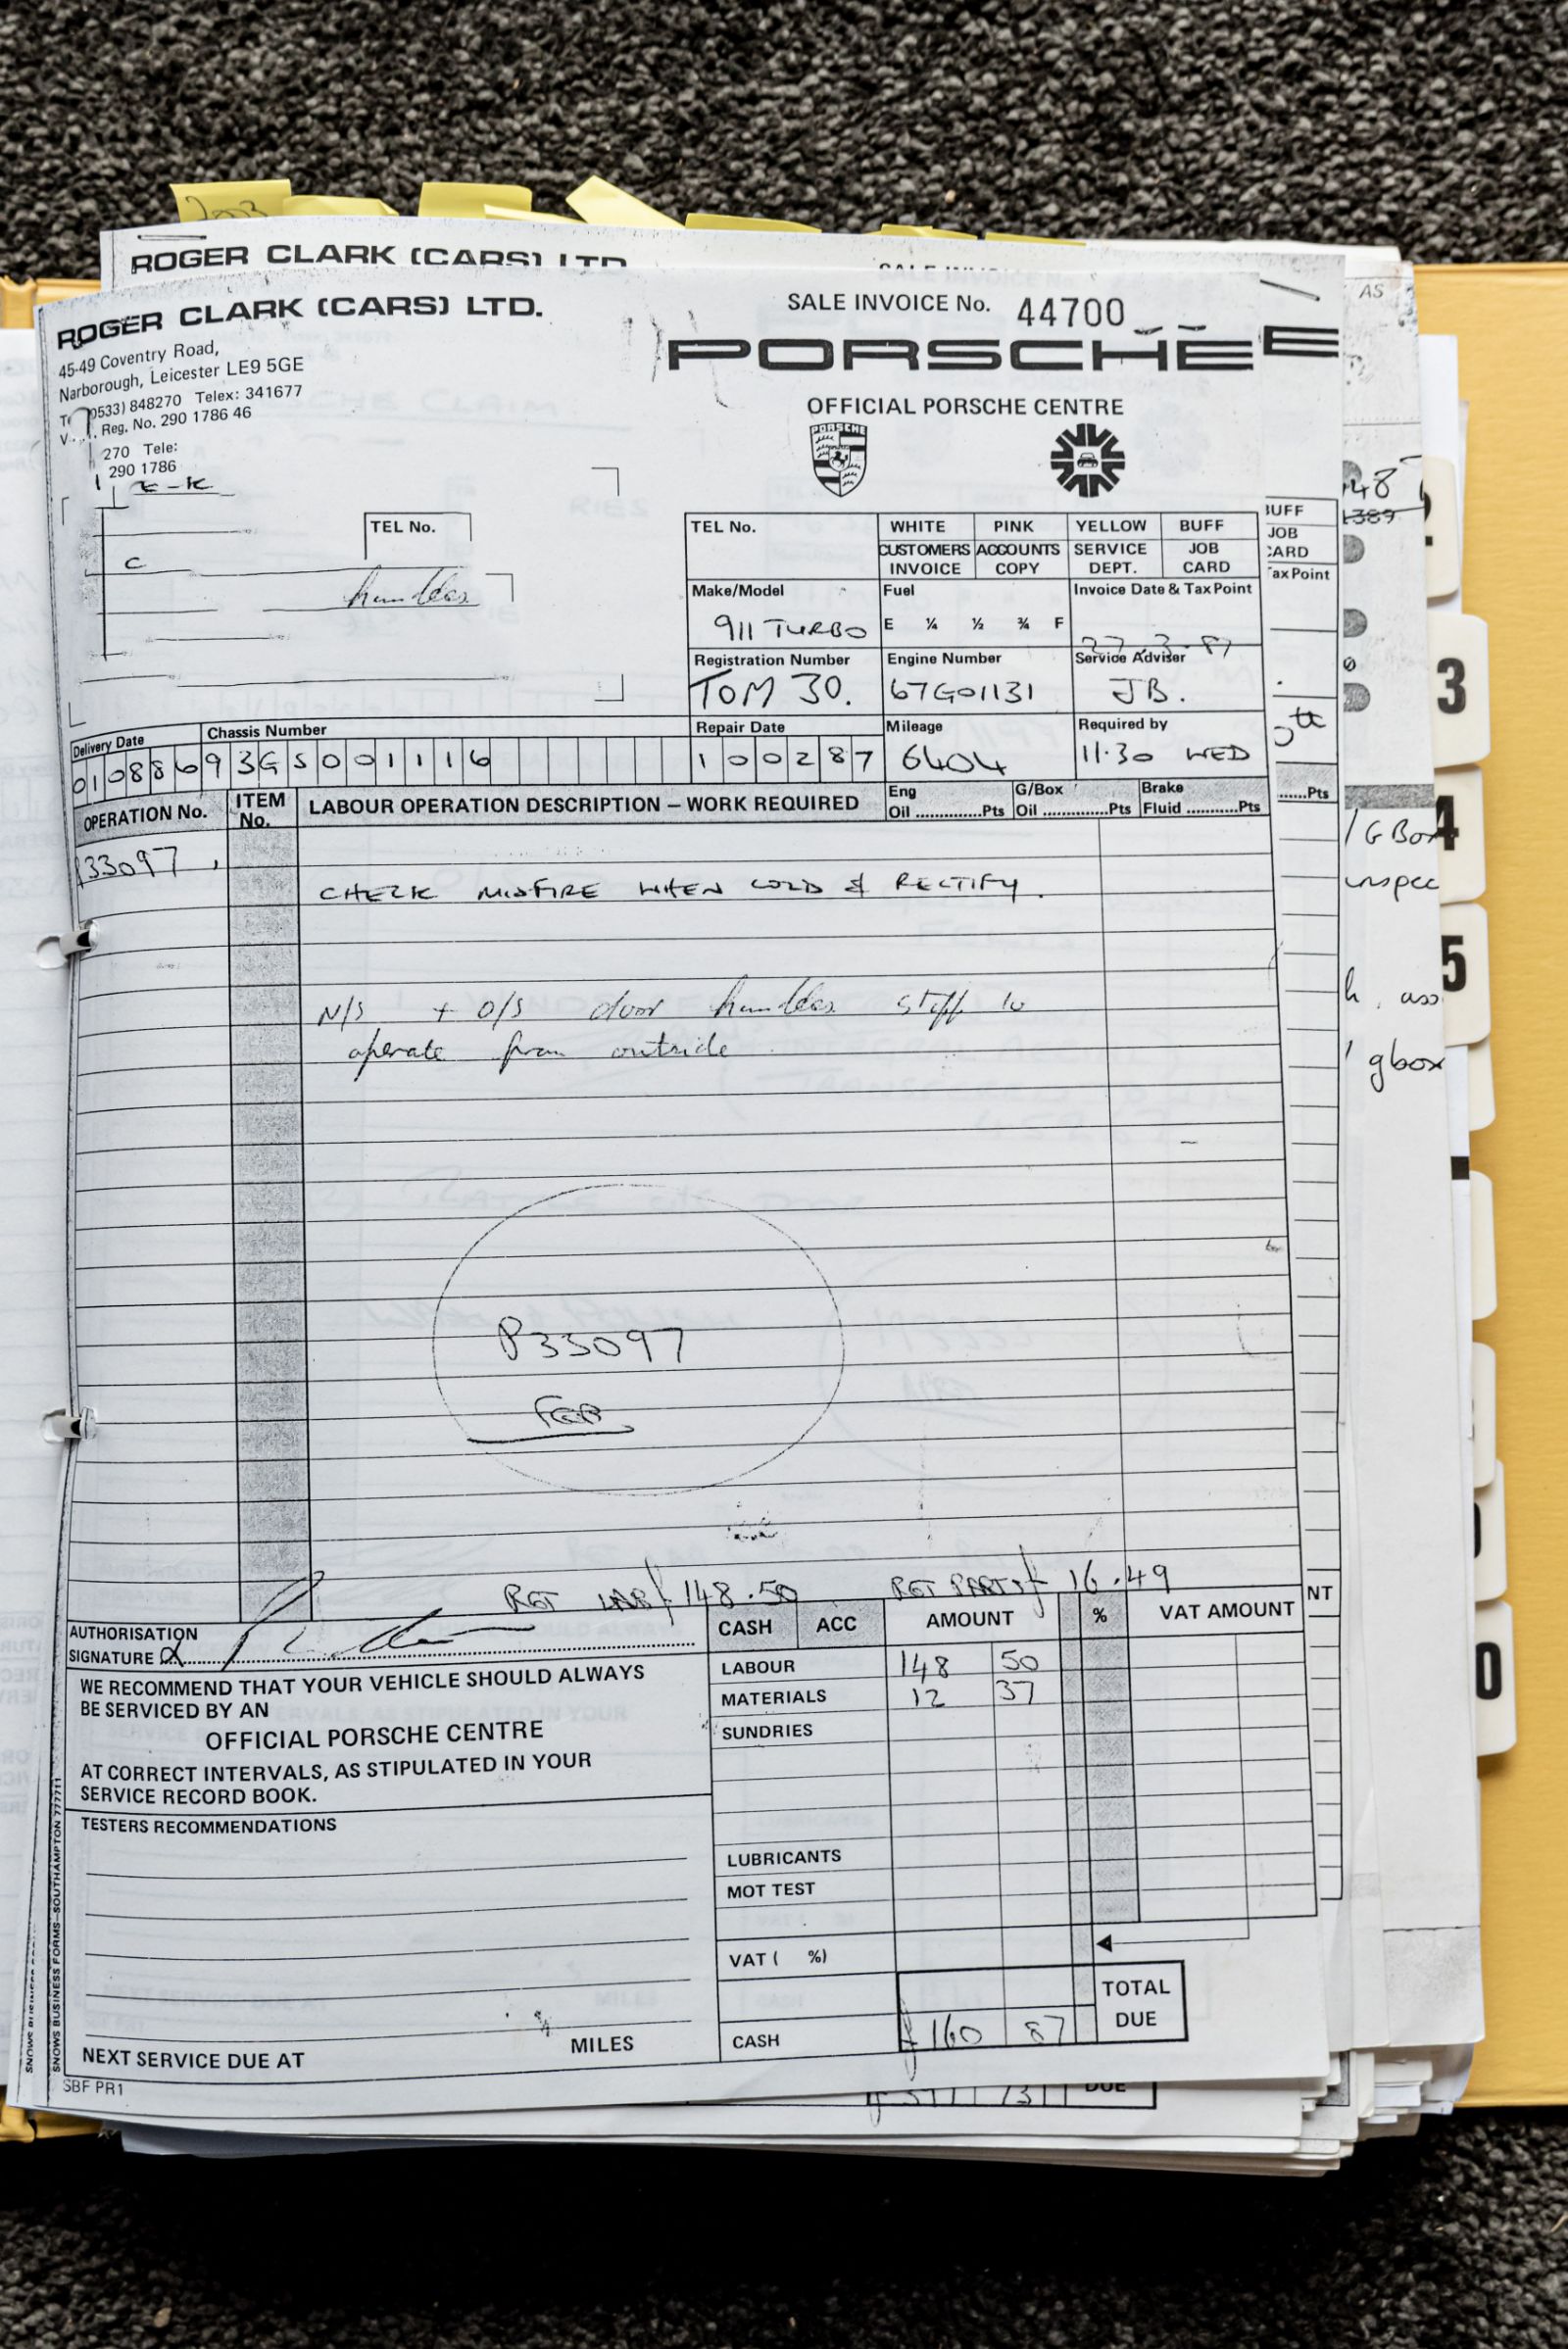 2003
ROGER CLARK (CARS) LTD
SALE INVOICE No.
AS
ROGER CLARK (CARS) LTD.
45-49 Coventry Road,
Narborough, Leicester LE9 5GE
(0533) 848270 Telex: 341677
Reg. No. 290 1786 46
270 Tele:
290 1786
SALE INVOICE No. 44700
PORSCHE E
OFFICIAL PORSCHE CENTRE
PORSCHE
TEL No.
C
handles
TEL No.
WHITE PINK YELLOW BUFF
CUSTOMERS INVOICE ACCOUNTS COPY SERVICE DEPT. JOB CARD
BUFF
JOB
CARD
Tax Point
Make/Model 911 TURBO
Fuel E ¼ ½ ¾ F
Invoice Date & Tax Point 27-3-87
Registration Number TOM 30.
Engine Number 67G01131
Service Adviser JB.
Delivery Date 010886
Chassis Number 93GS001116
Repair Date 100287
Mileage 6404
Required by 11·30 WED
OPERATION No. ITEM No. LABOUR OPERATION DESCRIPTION – WORK REQUIRED
Eng Oil ..............Pts G/Box Oil ..............Pts Brake Fluid ...........Pts
......Pts
P33097
CHECK MISFIRE WHEN COLD & RECTIFY.
N/S + O/S door handles stiff to
operate from outside
P33097
FEB
RET LAB £148.50 RET PARTS £16.49
AUTHORISATION
SIGNATURE
WE RECOMMEND THAT YOUR VEHICLE SHOULD ALWAYS
BE SERVICED BY AN
OFFICIAL PORSCHE CENTRE
AT CORRECT INTERVALS, AS STIPULATED IN YOUR
SERVICE RECORD BOOK.
TESTERS RECOMMENDATIONS
MILES
NEXT SERVICE DUE AT
SBF PR1
SNOWS BUSINESS FORMS–SOUTHAMPTON 777711
CASH ACC AMOUNT % VAT AMOUNT
LABOUR 148 50
MATERIALS 12 37
SUNDRIES
LUBRICANTS
MOT TEST
VAT ( %)
CASH £160 87
TOTAL
DUE
NT
DUE
48
1389
/ G Box
inspec
h. ass
/ gbox
3
4
5
0